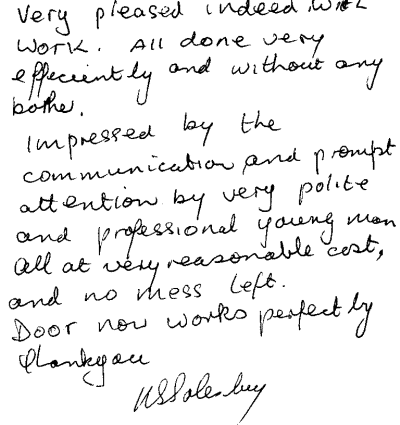 Very pleased indeed with
work. All done very
effeciently and without any
bother.
Impressed by the
communication and prompt
attention by very polite
and professional young man
all at very reasonable cost,
and no mess left.
Door now works perfectly
Thankyou